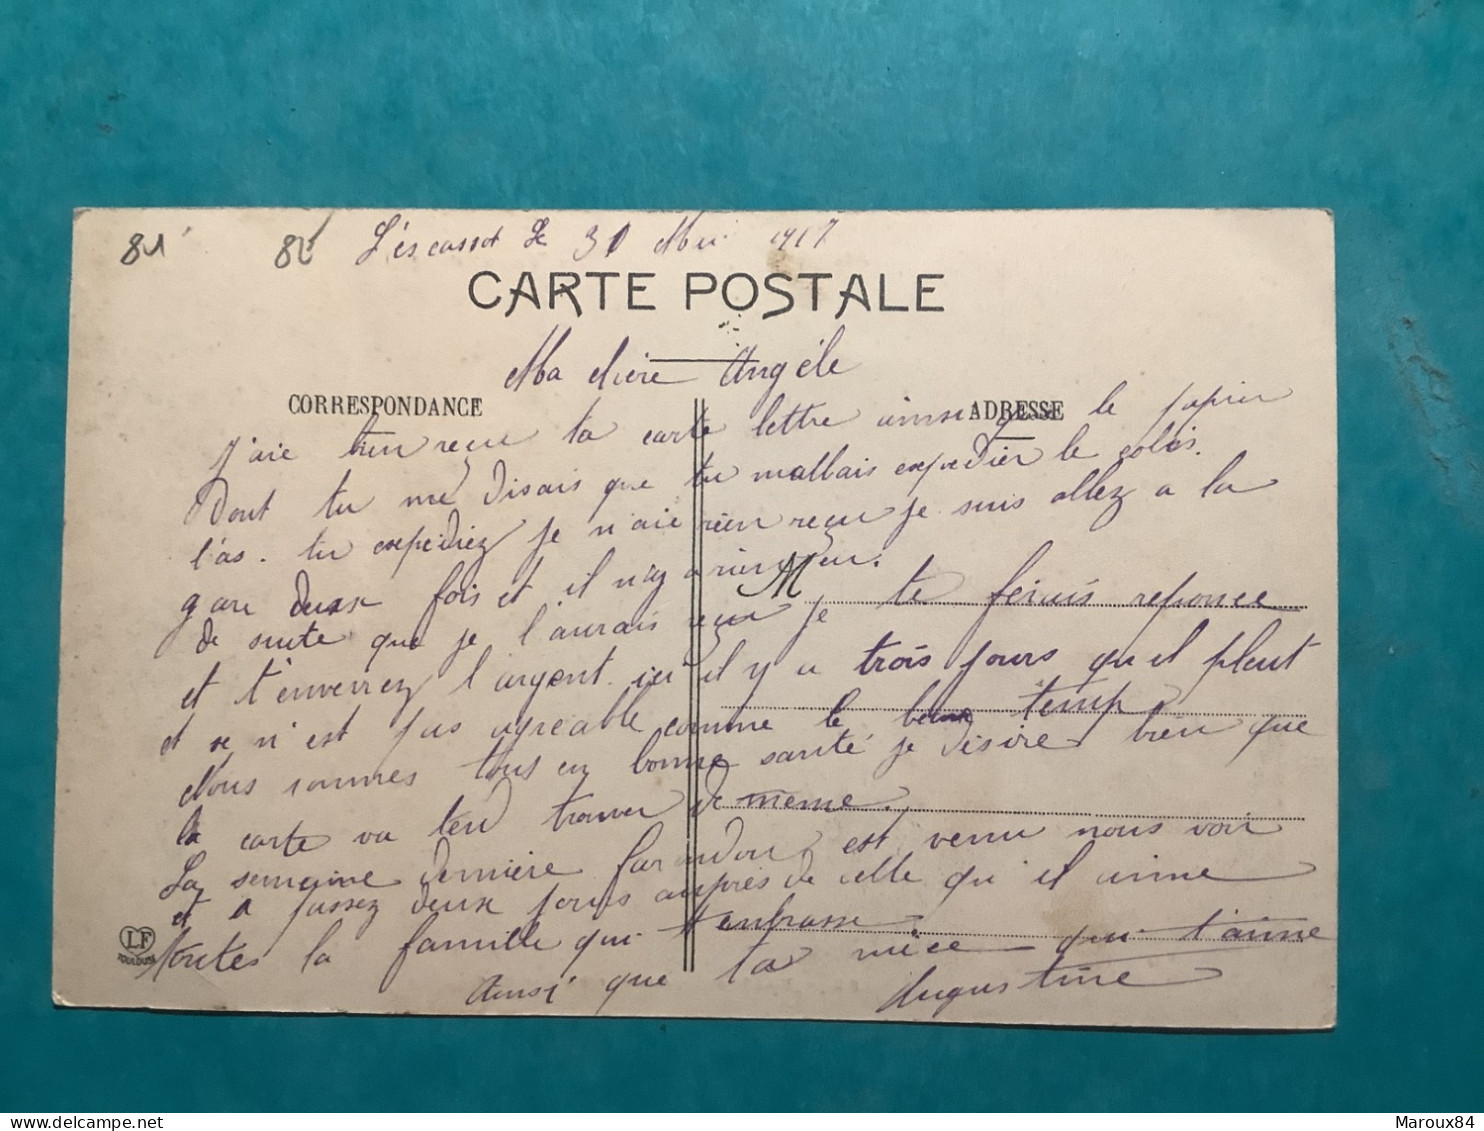 81 82 L'éscassot Le 31 Mai 1917
CARTE POSTALE
Ma chere Angéle
CORRESPONDANCE
ADRESSE
J'aie bien reçu ta carte lettre ainsi que le papier
Dont tu me disais que tu mallais expedier le colis.
l'as. tu expediez je n'aie rien reçu je suis allez a la
gare deux fois et il n'y a rien eu.
M
de suite que je l'aurais reçu je te ferais reponce
et t'enverrez l'argent. ici il y a trois jours qu il pleut
et se n'est pas agreable comme le beau temp
Nous sommes tous en bonne santé je désire bien que
la carte va ten trouver de meme.
La semaine dernière est venu nous voir
et a passez deux jours auprès de celle qu il aime
toutes la famille qui t'enbrasse
Ainsi que ta niéce qui t'aime
Augustine
LF
TOULOUSE
Maroux84